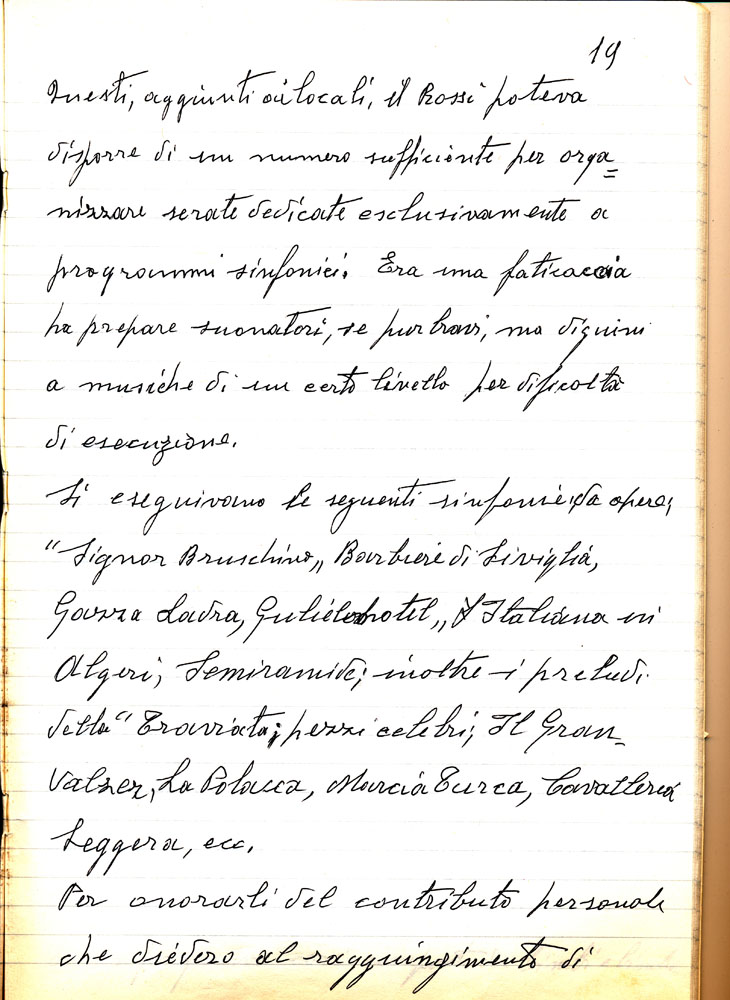 19
Questi, aggiunti ai locali, il Rossi poteva
disporre di un numero sufficiente per orga=
nizzare serate dedicate esclusivamente a
programmi sinfonici. Era una faticaccia
ha prepare suonatori, se pur bravi, ma digiuni
a musiche di un certo livello per dificoltà
di esecuzione.
Si eseguivano le seguenti sinfonie da opere;
"Signor Bruschino„ Barbiere di Siviglia,
Gazza Ladra, „ L'Italiana in
Algeri, Semiramide; inoltre i preludi
della "Traviata; pezzi celebri; Il Gran-
Valzer, La Polacca, Marcia Turca, Cavalleria
Leggera, ecc.
Per onorarli del contributo personale
che diedero al raggiungimento di